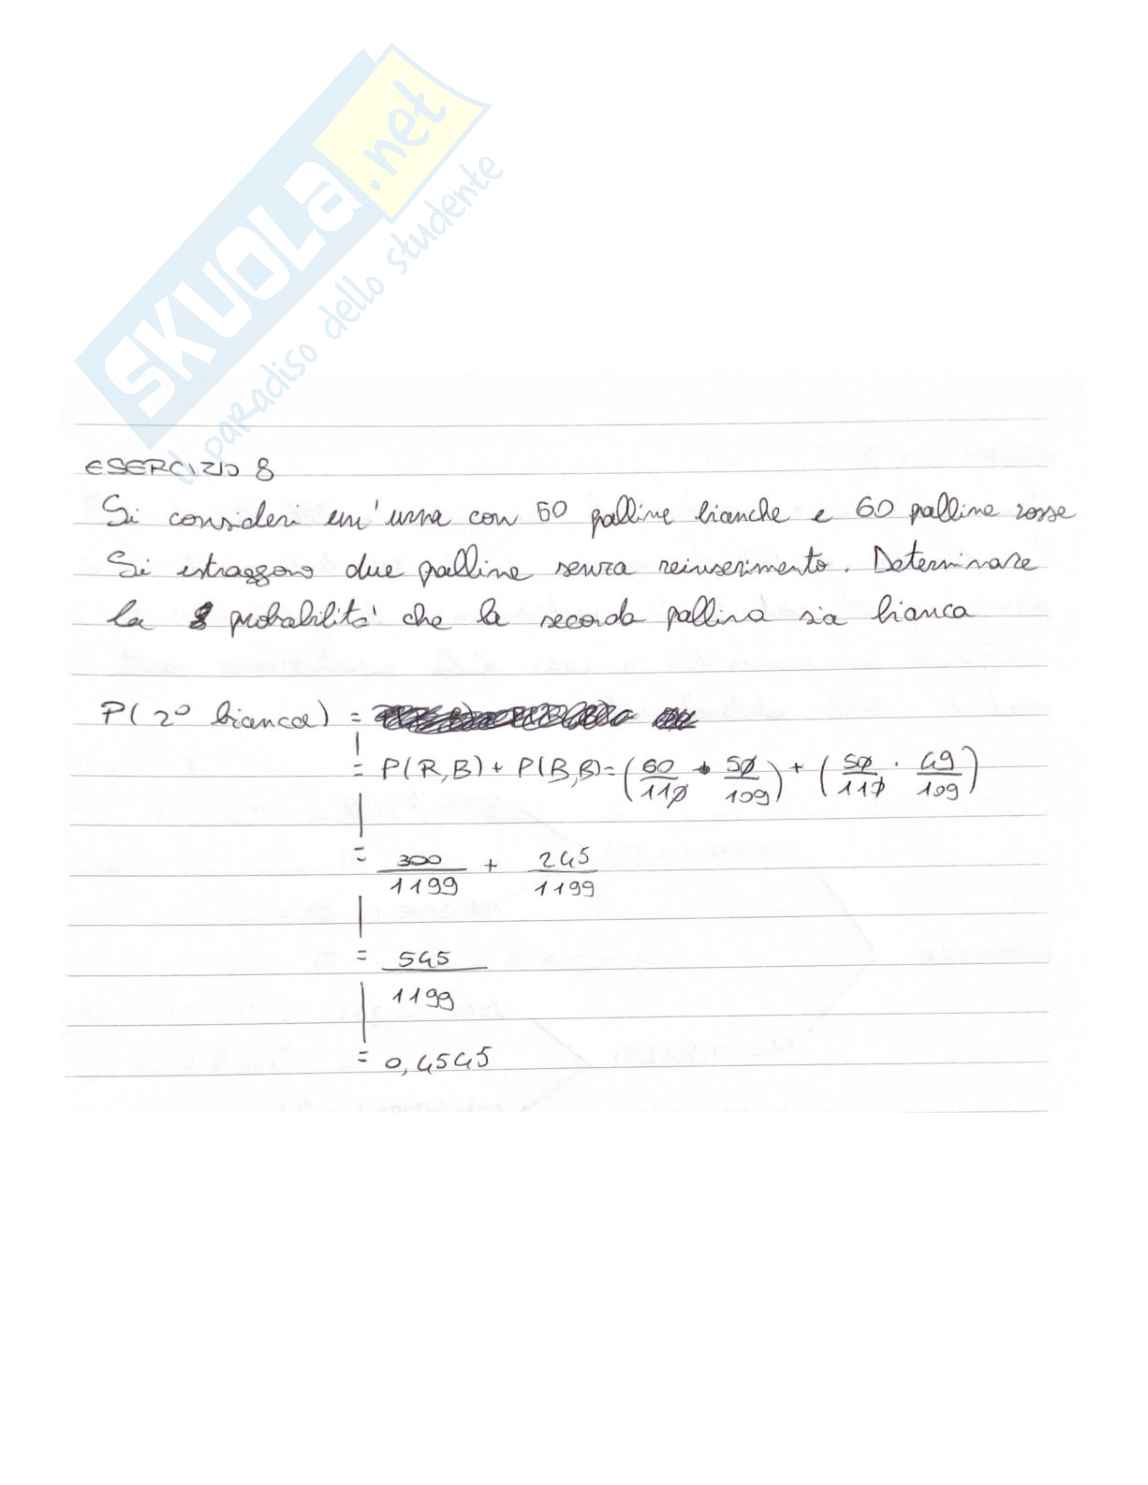 SKUOLA.net
il paradiso dello studente
ESERCIZIO 8
Si consideri un'urna con 50 palline bianche e 60 palline rosse
Si estraggono due palline senza reinserimento. Determinare
la probabilità che la seconda pallina sia bianca
P(2° bianca) =
= P(R,B) + P(B,B) = (60/110 · 50/109) + (50/110 · 49/109)
= 300/1199 + 245/1199
= 545/1199
= 0,4545